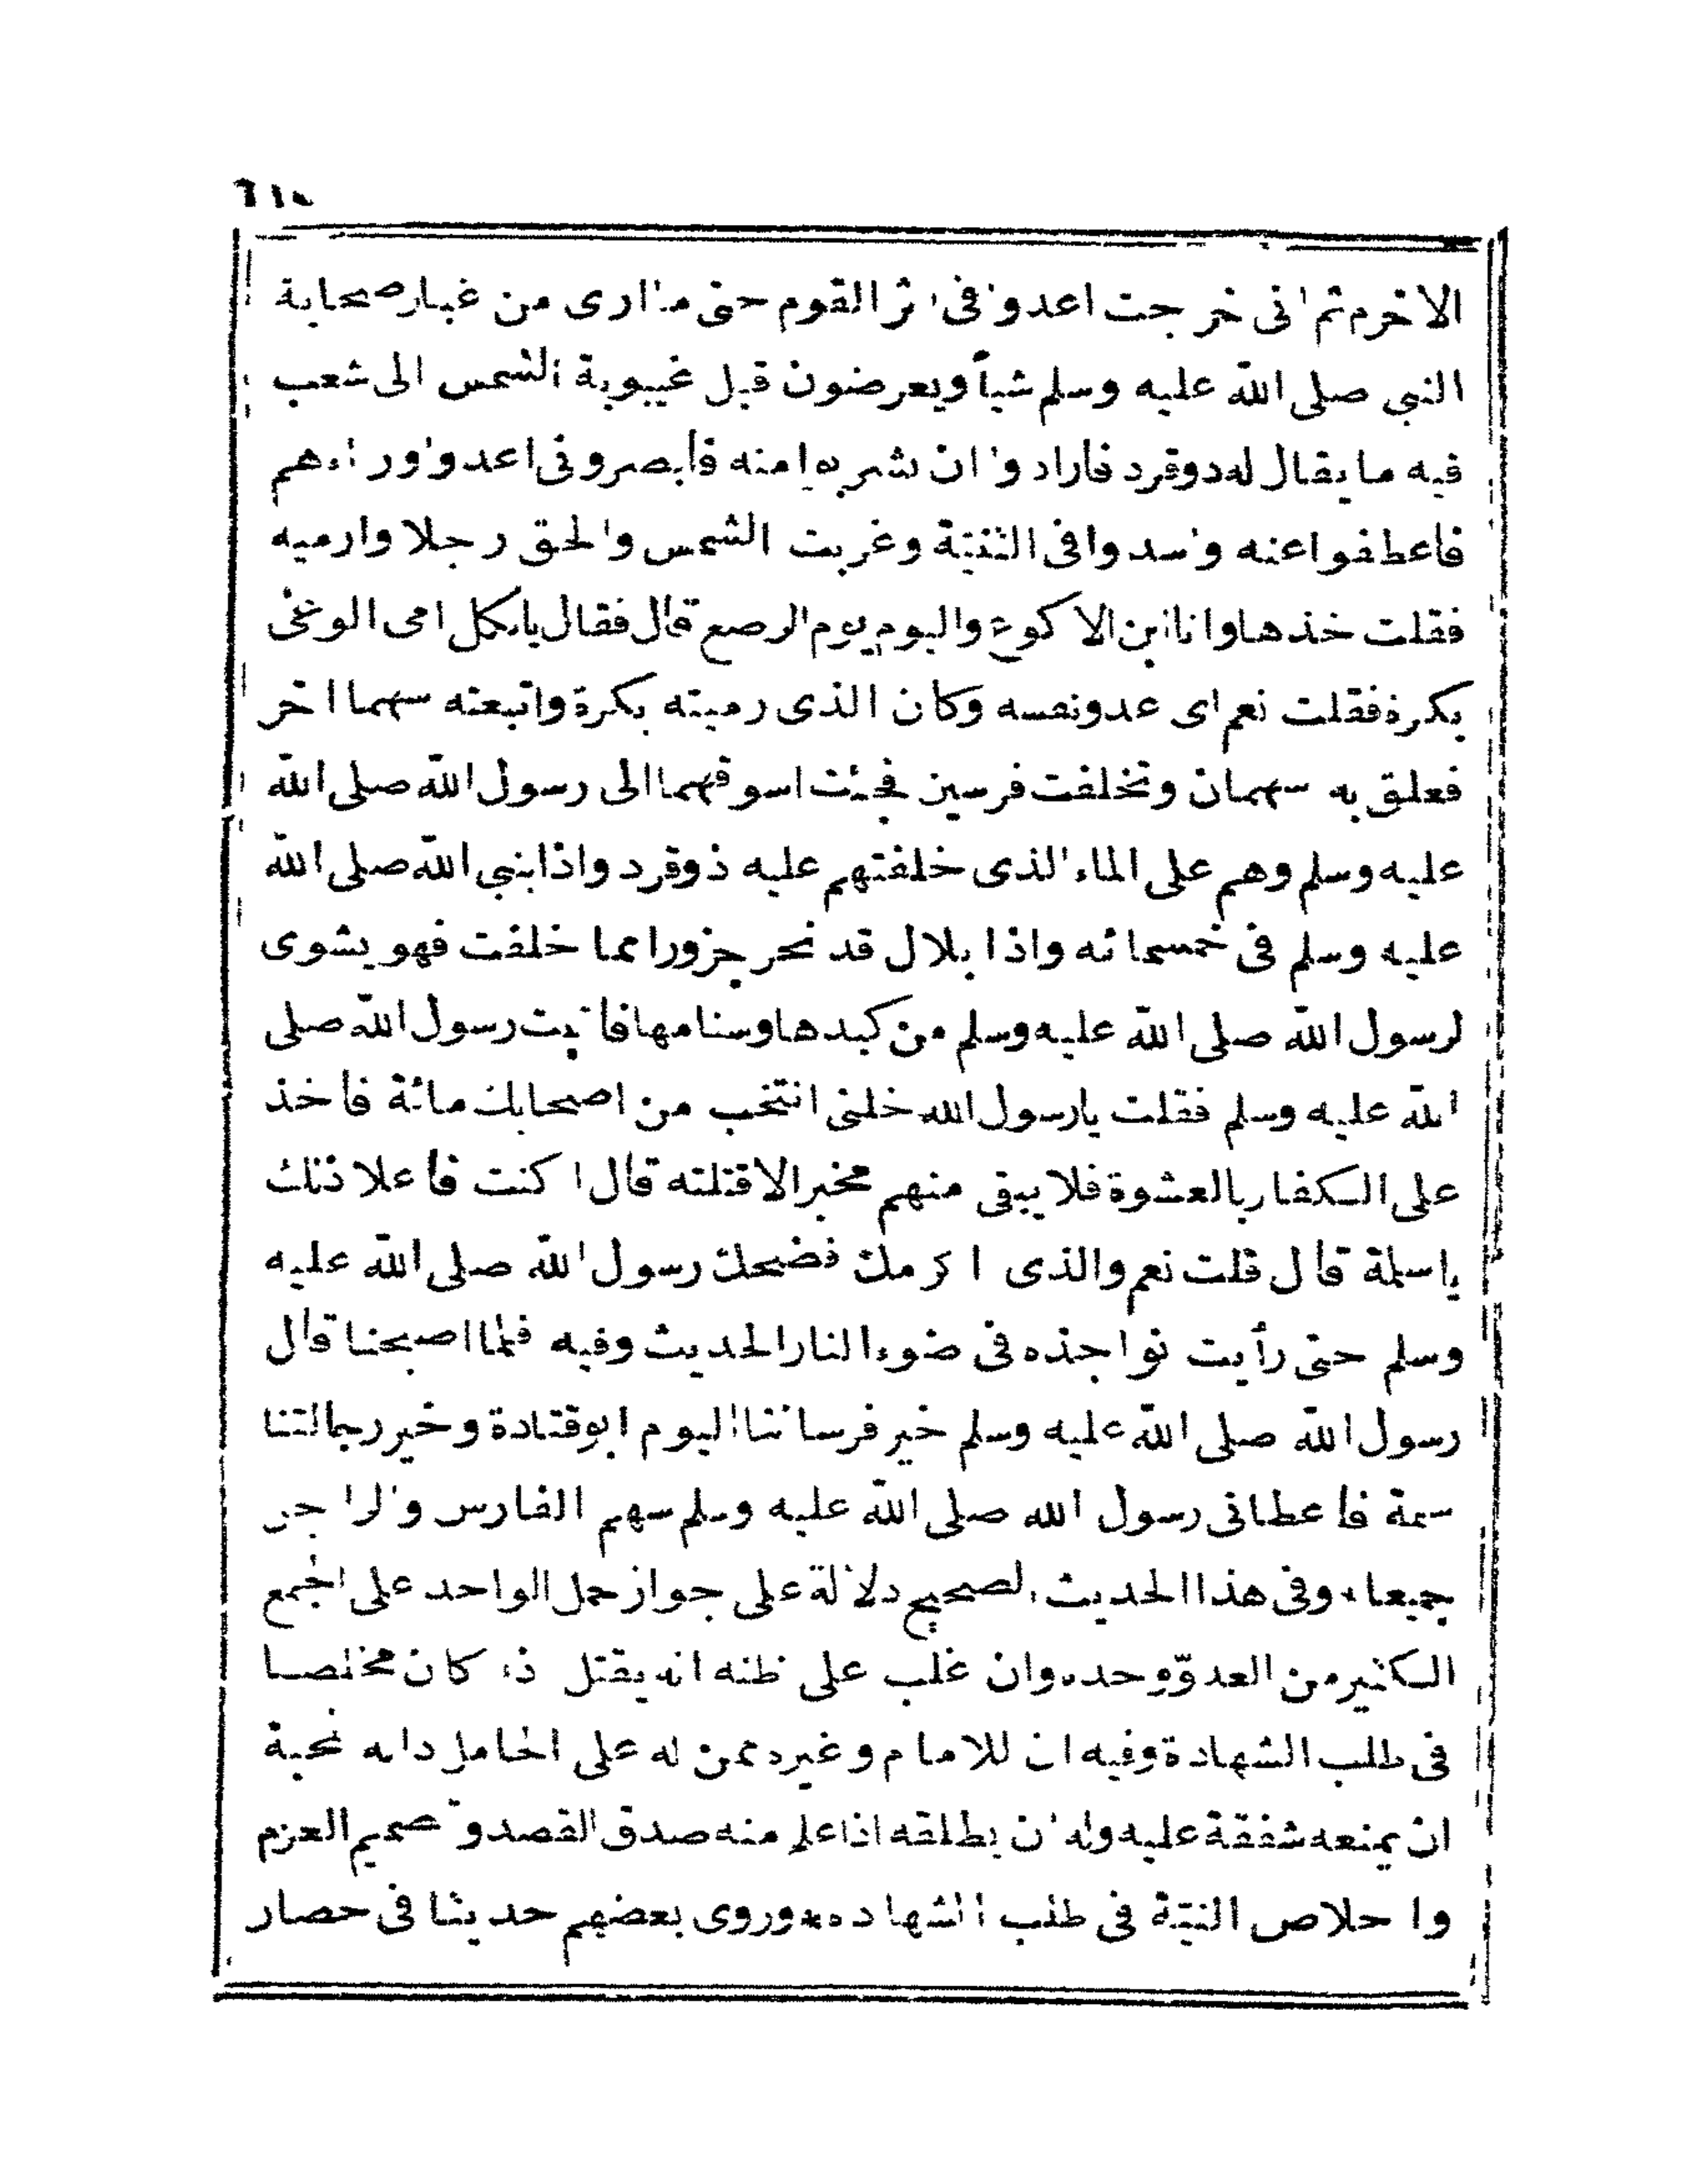 الاخرم ثم انى خرجت اعدو فى اثر القوم حتى ما ارى من غبار صحابة
النبي صلى الله عليه وسلم شيأ ويعرضون قبل غيبوبة الشمس الى شعب
فيه ما يقال له ذوقرد فارادوا ان يشربوا منه فأبصرونى اعدو وراءهم
فاعطفوا عنه واسدوا فى الثنية وغربت الشمس والحق رجلا وارميه
فقلت خذها وانا ابن الاكوع واليوم يوم الرضع قال فقال يا ثكل امى الوغى
بكرة فقلت نعم اى عدو نفسه وكان الذى رميته بكرة واتبعته سهما اخر
فعلق به سهمان وتخلفت فرسين فجئت اسوقهما الى رسول الله صلى الله
عليه وسلم وهم على الماء الذى خلفتهم عليه ذوقرد واذا بنبي الله صلى الله
عليه وسلم فى خمسمائه واذا بلال قد نحر جزورا مما خلفت فهو يشوى
لرسول الله صلى الله عليه وسلم من كبدها وسنامها فاتيت رسول الله صلى
الله عليه وسلم فقلت يا رسول الله خلنى انتخب من اصحابك مائة فاخذ
على الكفار بالعشوة فلا يبقى منهم مخبر الا قتلته قال اكنت فاعلا ذلك
يا سلمة قال قلت نعم والذى اكرمك فضحك رسول الله صلى الله عليه
وسلم حتى رأيت نواجذه فى ضوء النار الحديث وفيه فلما اصبحنا قال
رسول الله صلى الله عليه وسلم خير فرساننا اليوم ابوقتادة وخير رجالتنا
سلمة فاعطانى رسول الله صلى الله عليه وسلم سهم الفارس والراجل
جميعا * وفى هذا الحديث الصحيح دلالة على جواز حمل الواحد على الجمع
الكثير من العدوّ وحده وان غلب على ظنه انه يقتل اذا كان مخلصا
فى طلب الشهادة وفيه ان للامام وغيره ممن له على الحامل دالة محبة
ان يمنعه شفقة عليه وله ان يطلقه اذا علم منه صدق القصد وتصميم العزم
واخلاص النية فى طلب الشهاده * وروى بعضهم حديثا فى حصار